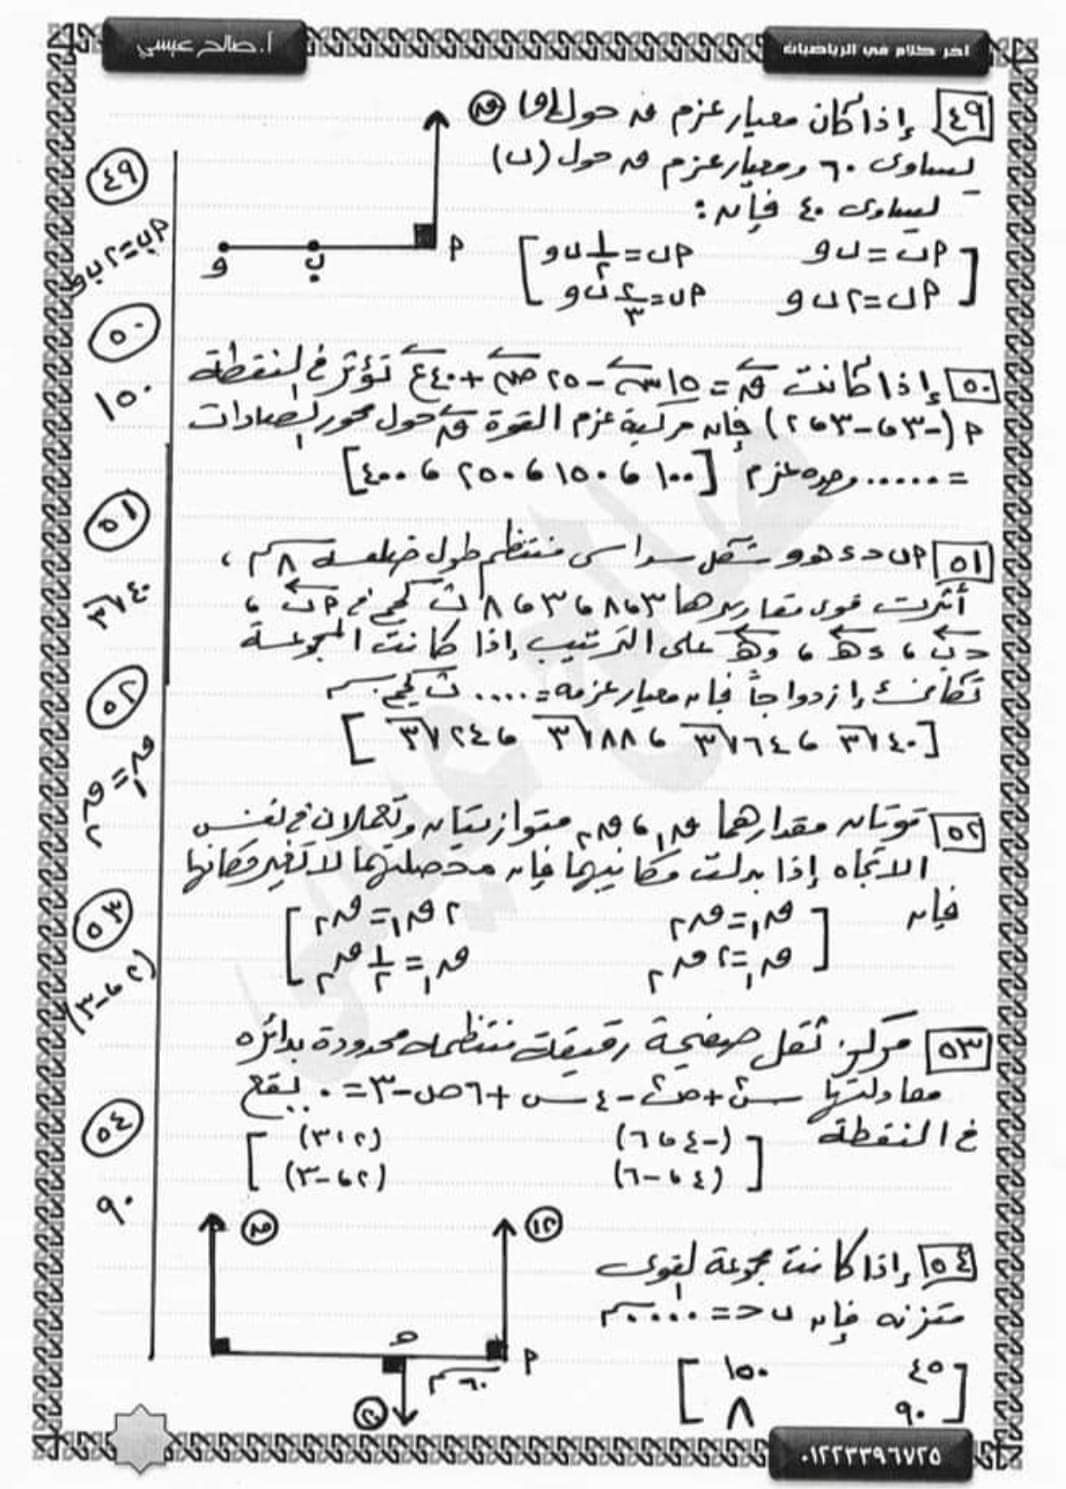 أ. صالح عيسى
آخر كلام في الرياضيات
٤٩ إذا كان معيار عزم ق حول (و)
يساوى ٦٠ ومعيار عزم ق حول (ب)
يساوى ٤٠ فإن :
[ أب = ب و أب = ١/٢ ب و
أب = ٢ ب و أب = ٢/٣ ب و ]
ق
أ
ب
و
٥٠ إذا كانت ق = ١٥ س - ٢٥ ص + ٤٠ ع تؤثر في النقطة
أ (-٣ ، -٣ ، ٢) فإن مركبة عزم القوة ق حول محور الصادات
= ...... وحدة عزم [ ١٠٠ ، ١٥٠ ، ٢٥٠ ، ٤٠٠ ]
٥١ أ ب ح د هـ و شكل سداسى منتظم طول ضلعه ٨ سم ،
أثرت قوى مقاديرها ٣ ، ٨ ، ٣ ، ٨ ث كجم في أ ب ،
ح ب ، د هـ ، و هـ على الترتيب إذا كانت المجموعة
تكافئ إزدواجاً فإن معيار عزمه = .... ث كجم . سم
[ ٤٠√٣ ، ٦٤√٣ ، ٨٨√٣ ، ٢٤√٣ ]
٥٢ قوتان مقدارهما ق١ ، ق٢ متوازيتان وتعملان في نفس
الاتجاه إذا بدلت مكانيهما فإن محصلتهما لا تغير مكانها
فإن
[ ق١ = ق٢ ٢ ق١ = ق٢
ق١ = ٢ ق٢ ق١ = ١/٢ ق٢ ]
٥٣ مركز ثقل صفيحة رقيقة منتظمة محدودة بدائرة
معادلتها س٢ + ص٢ - ٤ س + ٦ ص - ٣ = ٠ يقع
في النقطة
[ (-٤ ، ٦) (٢ ، ٣)
(٤ ، -٦) (٢ ، -٣) ]
٥٤ إذا كانت مجموعة القوى
متزنة فإن ب ح = ..... سم
[ ٤٥ ١٥٠
٩٠ ٨ ]
١٢
ق
ح
أ
٦٠ سم
٢٠
٤٩
أب = ٢ ب و
٥٠
١٥٠
٥١
٤٠√٣
٥٢
ق١ = ق٢
٥٣
(٢ ، -٣)
٥٤
٩٠
٠١٢٢٣٣٩٦٧٢٥